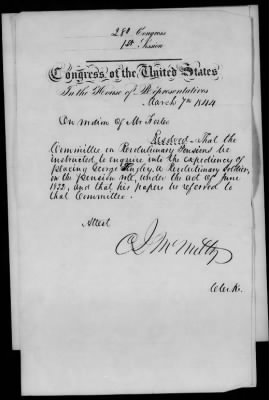 28th Congress
1st Session
Congress of the United States
In the House of Representatives
March 7th 1844
On motion of Mr Foster
Resolved — That the
Committee on Revolutionary Pensions be
instructed to enquire into the expediency of
placing George, a Revolutionary Soldier,
on the pension roll, under the act of June
1832, and that his papers be referred to
that Committee.
Attest
C J McNulty
Clerk.